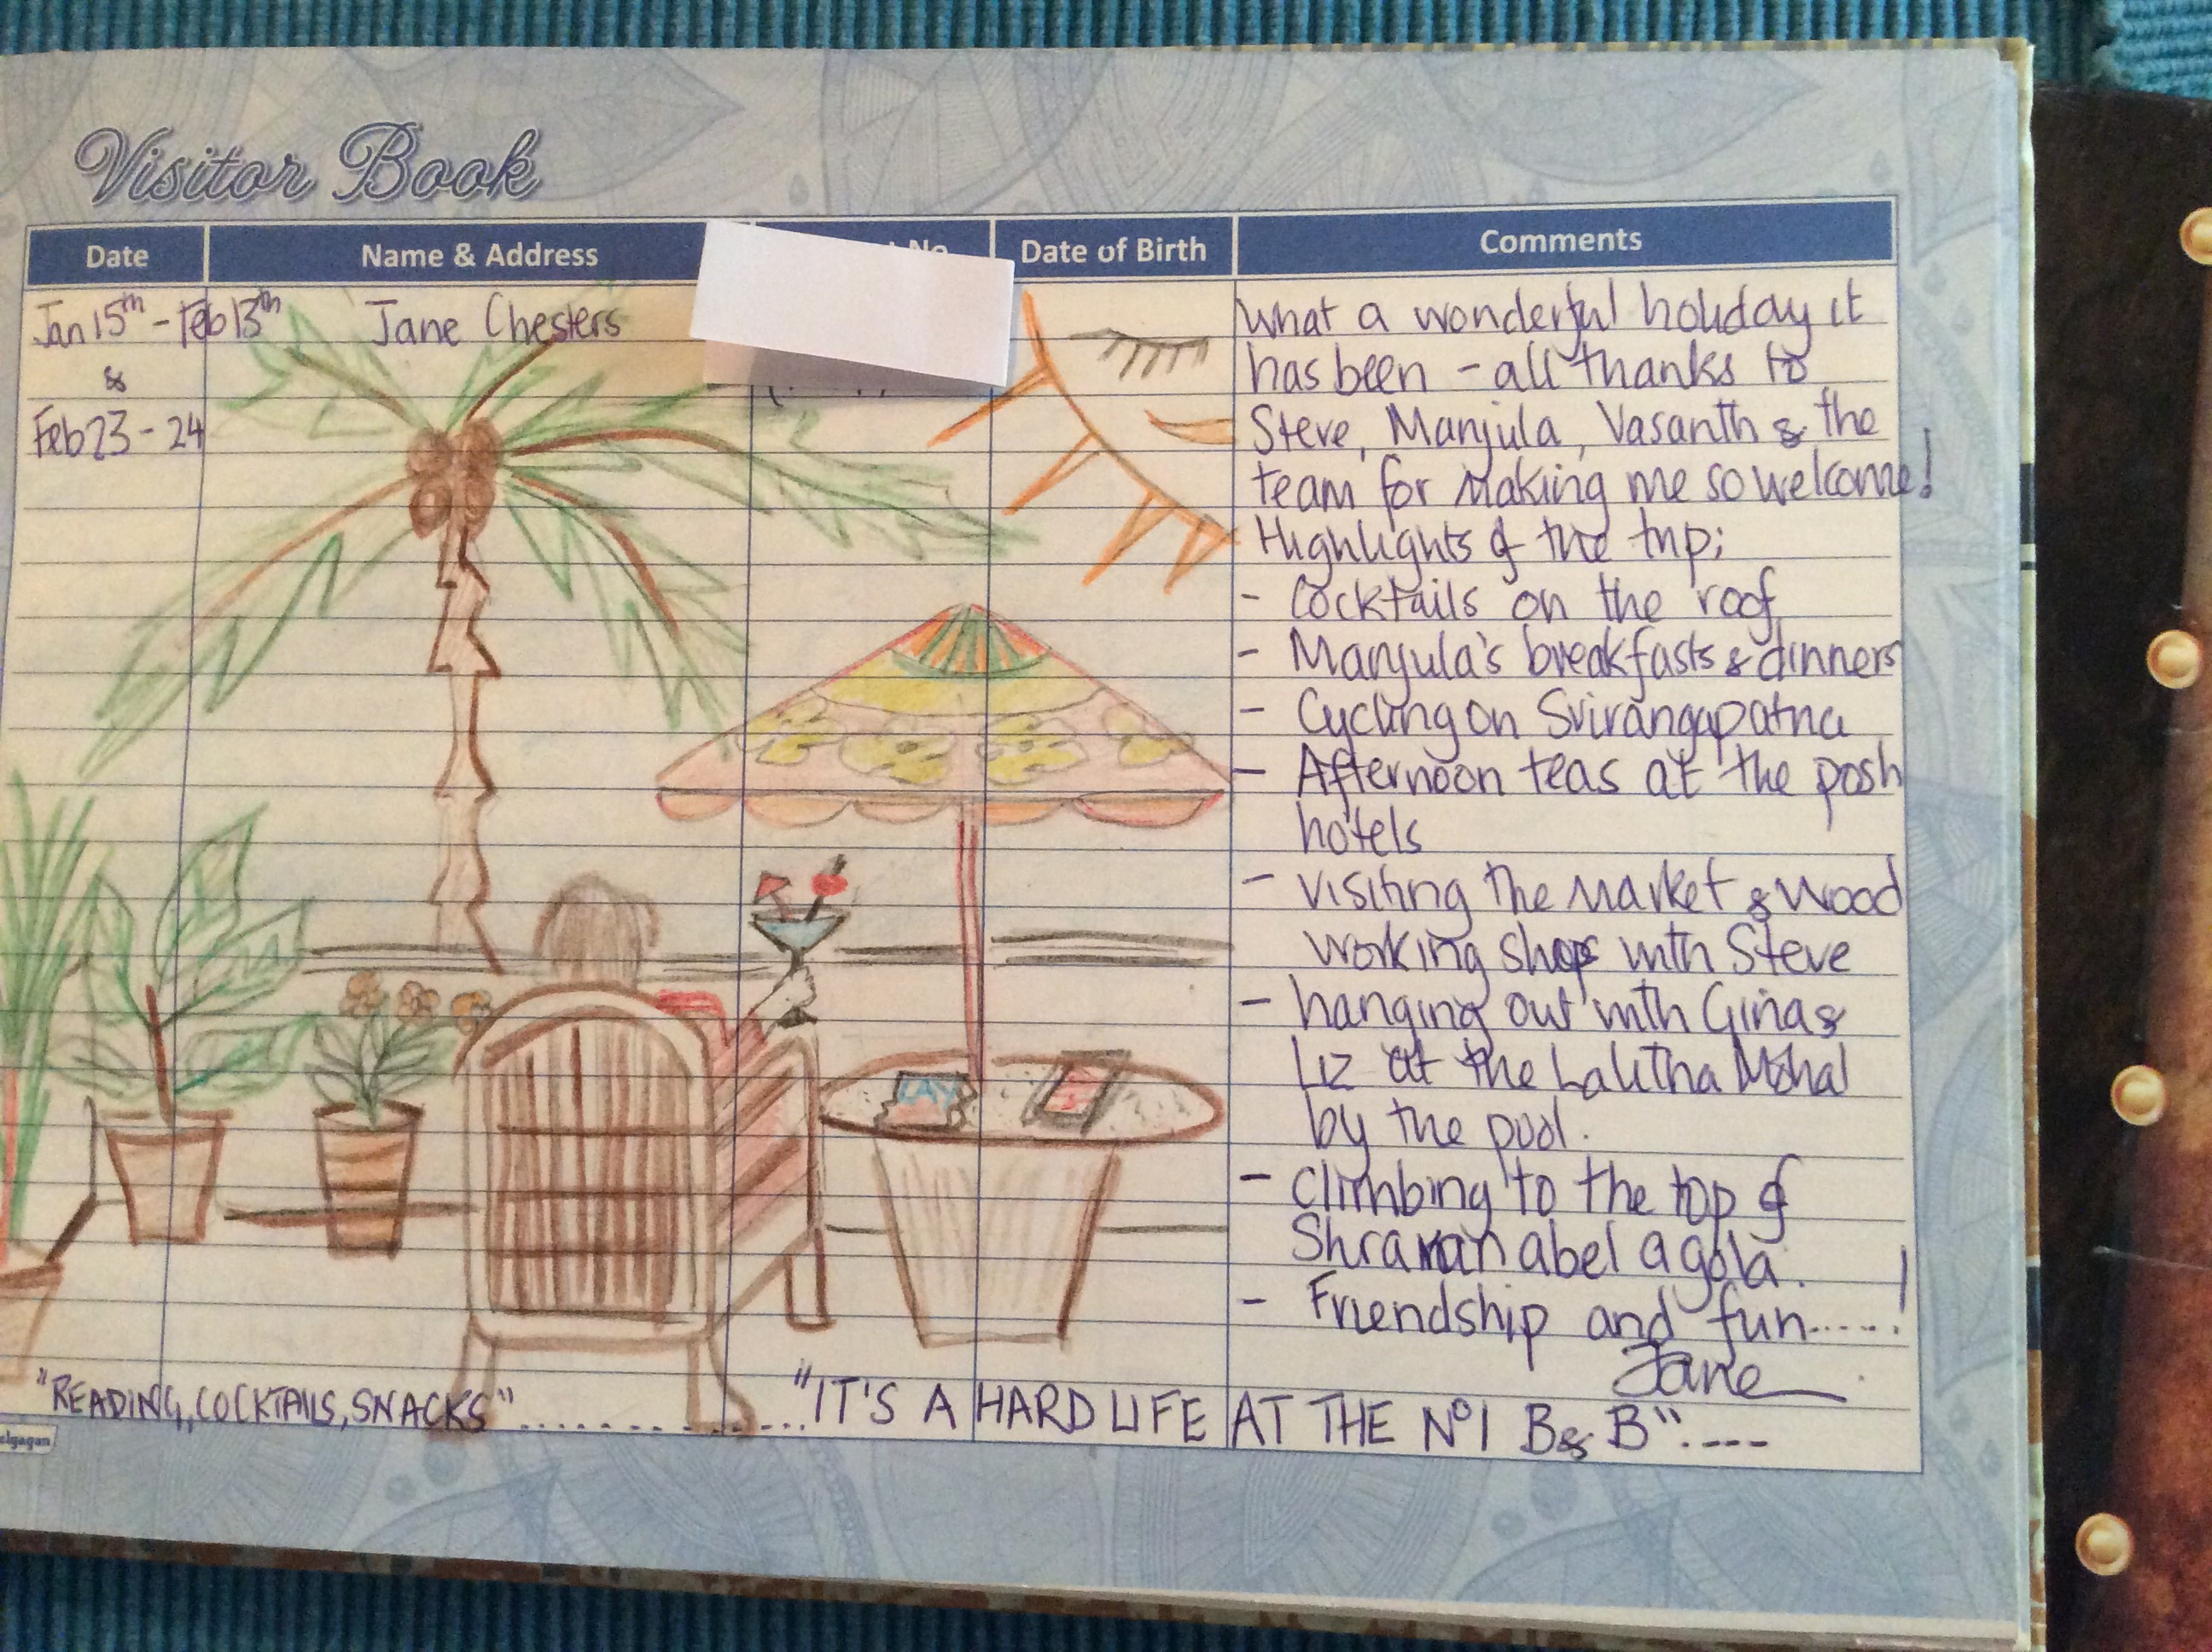 Visitor Book
Date Name & Address No Date of Birth Comments
Jan 15th - Feb 13th Jane Chesters
&
Feb 23 - 24
What a wonderful holiday it
has been - all thanks to
Steve, Manjula, Vasanth & the
team for making me so welcome!
Highlights of the trip;
- Cocktails on the roof
- Manjula's breakfasts & dinners
- Cycling on Srirangapatna
- Afternoon teas at the posh
hotels
- visiting the market & wood
working shops with Steve
- hanging out with Gina &
Liz at the Lalitha Mahal
by the pool.
- Climbing to the top of
Shravanabelagola.
- Friendship and fun.....!
Jane
LAY
"READING, COCKTAILS, SNACKS".............."IT'S A HARD LIFE AT THE No1 B&B".----
elgagan